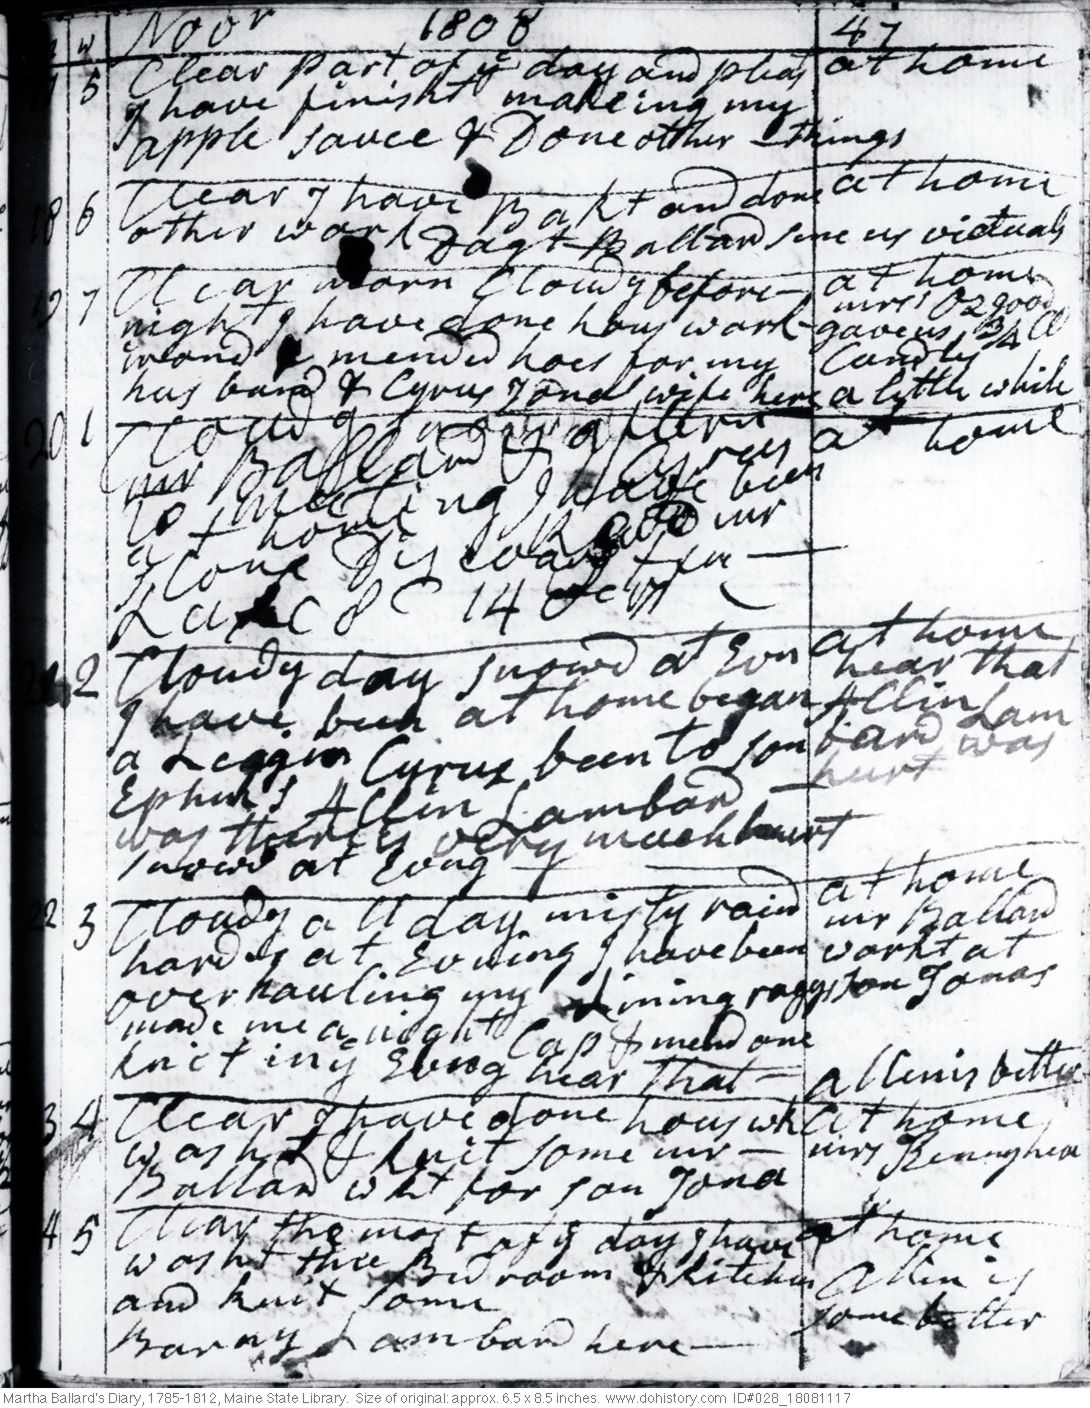 w Novr 1808 47
17 5 Clear part of ye day and pleas at home
I have finisht makeing my
apple sauce & Done other things
18 6 Clear I have Bakt and done at home
other work Dagt Ballard sent us victuals
19 7 Clear morn Cloudy before at home
night I have done hous work mrs Ozgood
gave us 3/4 lb
and mended hoes for my Candls
husband & Cyrus Jona wife here a little while
20 1 Cloudy at home
mr Ballard & Cyrus
to meeting I have been
at home mr
Stone Discoarst from
8 C 14 vers
21 2 Cloudy day snowd at Evn at home
I have been at home began hear that
a Leggin Cyrus been to son Allin Lam
Ephms Allin Lambard bard was
hurt
was there is very much hurt
snowd at Evng
22 3 Cloudy all day misty raind at home
hard at Evning I have been mr Ballard
overhauling my Lining raggs workt at
son Jonas
made me a night Cap & mend one
knit in ye Evng hear that allin is better
23 4 Clear I have done hous wk at home
washt & knit some mr mrs
Ballard wkt for son Jona
24 5 Clear the most of ye day I have at home
washt thee Bedroom & kitchin Allin is
and knit some some better
Barny Lambard here
Martha Ballard's Diary, 1785-1812, Maine State Library. Size of original: approx. 6.5 x 8.5 inches. www.dohistory.com ID#028_18081117